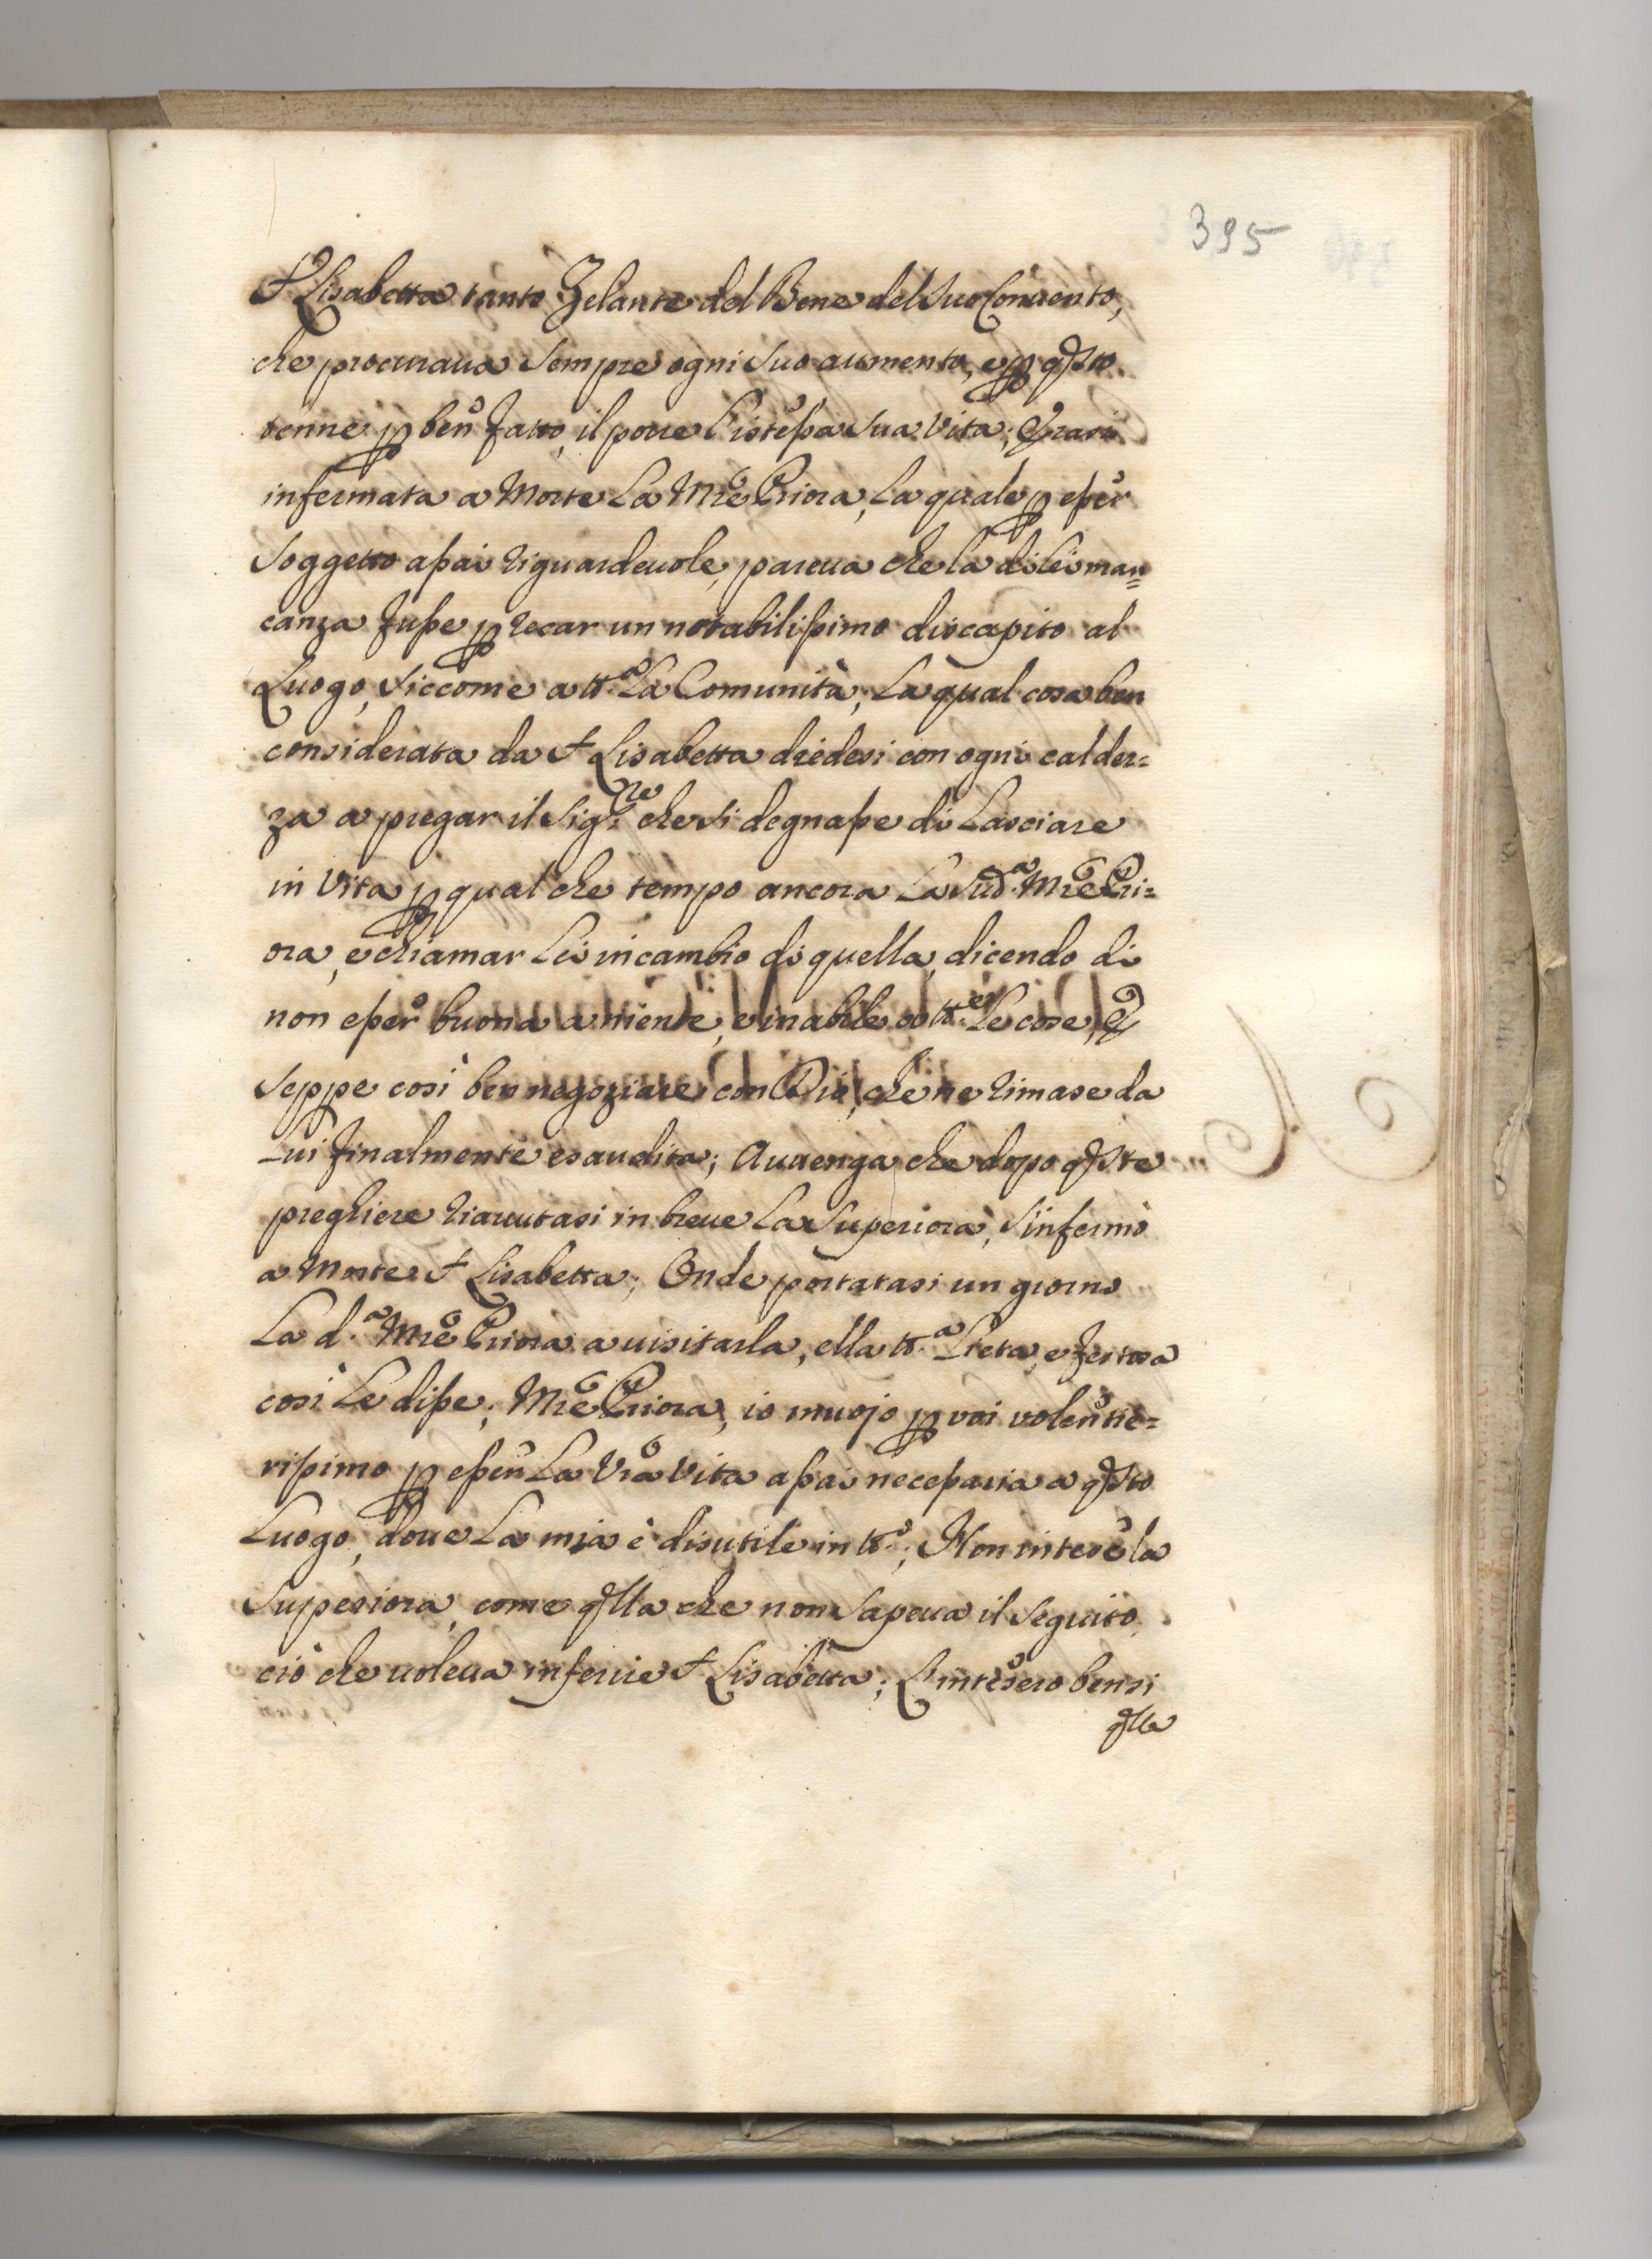 395
S Lisabetta tanto Zelante del Bene del suo Conuento,
che procuraua sempre ogni suo aumento, e p qsto
tenne p ben fatto, il porre l'istessa sua Vita; Erasi
infermata a Morte La Mre Priora, La quale p esser
soggetto assai riguardeuole, pareua che la di Lei man=
canza fusse p recar un notabilissimo discapito al
Luogo, siccome a tt.a La Comunità; La qual cosa ben
considerata da S Lisabetta diedesi con ogni caldez=
za a pregar il Sig.re che si degnasse di Lasciare
in Vita p qual che tempo ancora La sud.a Mre Pri=
ora, e chiamar Lei in cambio di quella, dicendo di
non esser buona a niente, e inabile a tt.e Le cose, E
seppe così ben negoziare con Dio, che ne rimase da
Lui finalmente esaudita; Auuenga che dopo qste
preghiere riauutasi in breue La Superiora, s'infermò
a Morte S Lisabetta; Onde portatasi un giorno
La d.a Mre Priora a uisitarla, ella tt.a Lieta, e festosa
così Le disse; Mre Priora, io muojo p voi volentie=
rissimo p essen La Vra Vita assai necessaria a qsto
Luogo, doue La mia è disutile in tt.o; Non intese la
Superiora, come qlla che non sapeua il seguito,
ciò che uoleua inferire S Lisabetta; L'intesero bensi
qlla